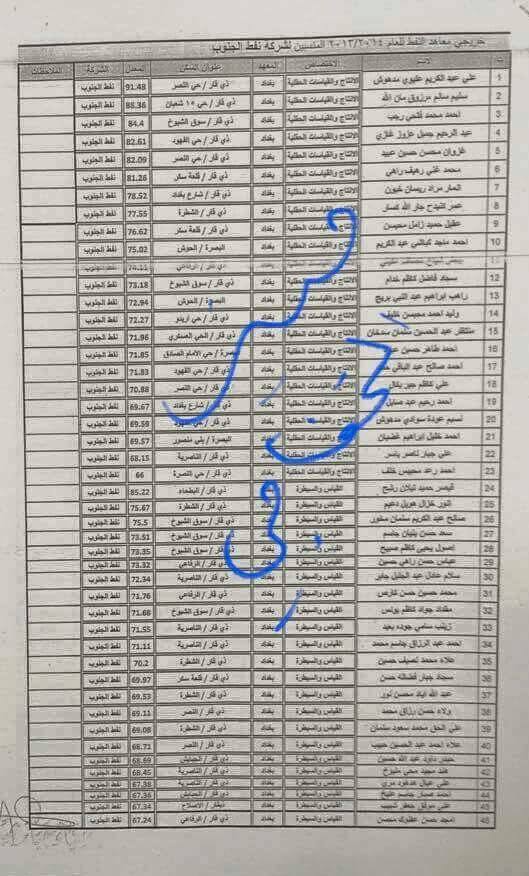 خريجي معاهد النفط للعام ٢٠١٣/٢٠١٤ المنسبين لشركة نفط الجنوب
ت الاسم الاختصاص المعهد عنوان السكن المعدل الشركة الملاحظات
1 علي عبد الكريم عليوي مدهوش الانتاج والقياسات الحقلية بغداد ذي قار / حي النصر 91.48 نفط الجنوب
2 سليم سالم مرزوق مان الله الانتاج والقياسات الحقلية بغداد ذي قار / حي ١٥ شعبان 88.36 نفط الجنوب
3 احمد محمد فلحي رجب الانتاج والقياسات الحقلية بغداد ذي قار / سوق الشيوخ 84.4 نفط الجنوب
4 عبد الرحيم جميل عزوز غازي الانتاج والقياسات الحقلية بغداد ذي قار / حي الفهود 82.61 نفط الجنوب
5 غزوان محسن حسين عبيد الانتاج والقياسات الحقلية بغداد ذي قار / حي النصر 82.09 نفط الجنوب
6 محمد غني رهيف راهي الانتاج والقياسات الحقلية بغداد ذي قار / قلعة سكر 81.26 نفط الجنوب
7 مراد ريسان الانتاج والقياسات الحقلية بغداد ذي قار / شارع بغداد 78.52 نفط الجنوب
8 عمر جار الله الانتاج والقياسات الحقلية بغداد ذي قار / الشطرة 77.55 نفط الجنوب
9 عقيل حميد زامل محيسن الانتاج والقياسات الحقلية بغداد ذي قار / قلعة سكر 76.62 نفط الجنوب
10 احمد ماجد عبد الكريم الانتاج والقياسات الحقلية بغداد البصرة / الحوش 75.02 نفط الجنوب
11 بغداد ذي قار / الرفاعي 74.11 نفط الجنوب
12 سجاد فاضل كاظم الانتاج والقياسات الحقلية بغداد ذي قار / سوق الشيوخ 73.18 نفط الجنوب
13 راهب ابراهيم عبد النبي بريج الانتاج والقياسات الحقلية بغداد البصرة / الحوش 72.94 نفط الجنوب
14 وليد احمد محيسن خليف الانتاج والقياسات الحقلية بغداد ذي قار / حي اريدو 72.27 نفط الجنوب
15 منتظر عبد الحسين سلمان الانتاج والقياسات الحقلية بغداد ذي قار / الحي العسكري 71.96 نفط الجنوب
16 احمد طاهر حسين الانتاج والقياسات الحقلية بغداد البصرة / حي الامام الصادق 71.85 نفط الجنوب
17 احمد صالح عبد الباقي الانتاج والقياسات الحقلية بغداد ذي قار / حي الفهود 71.83 نفط الجنوب
18 علي كاظم جبر الانتاج والقياسات الحقلية بغداد ذي قار / حي النصر 70.88 نفط الجنوب
19 احمد رحيم عبد الانتاج والقياسات الحقلية بغداد ذي قار / شارع بغداد 69.67 نفط الجنوب
20 نسيم عودة سوادي مدهوش الانتاج والقياسات الحقلية بغداد ذي قار 69.59 نفط الجنوب
21 احمد خليل ابراهيم غضبان الانتاج والقياسات الحقلية بغداد البصرة / 69.57 نفط الجنوب
22 علي جبار ناصر ياسر الانتاج والقياسات الحقلية بغداد ذي قار / الناصرية 68.15 نفط الجنوب
23 احمد رعد محيبس خلف الانتاج والقياسات الحقلية بغداد ذي قار / حي النصرة 66 نفط الجنوب
24 قيصر حميد القياس والسيطرة بغداد ذي قار / البطحاء 85.22 نفط الجنوب
25 انور القياس والسيطرة بغداد ذي قار / الشطرة 75.67 نفط الجنوب
26 صالح عبد الكريم سلمان القياس والسيطرة بغداد ذي قار / سوق الشيوخ 75.5 نفط الجنوب
27 سعد حسن جاسم القياس والسيطرة بغداد ذي قار / سوق الشيوخ 73.51 نفط الجنوب
28 يحيى كاظم القياس والسيطرة بغداد ذي قار / سوق الشيوخ 73.35 نفط الجنوب
29 عباس حسن راهي حسين القياس والسيطرة بغداد ذي قار / الرفاعي 73.32 نفط الجنوب
30 سلام عادل عبد الجليل جابر القياس والسيطرة بغداد ذي قار / الناصرية 72.34 نفط الجنوب
31 محمد حسين حسن القياس والسيطرة بغداد ذي قار / الرفاعي 71.76 نفط الجنوب
32 مقداد جواد كاظم يونس القياس والسيطرة بغداد ذي قار / سوق الشيوخ 71.66 نفط الجنوب
33 زينب سامي جوده القياس والسيطرة بغداد ذي قار / الناصرية 71.55 نفط الجنوب
34 احمد عبد الرزاق جاسم محمد القياس والسيطرة بغداد ذي قار / الناصرية 71.11 نفط الجنوب
35 علاء محمد نصيف حسين القياس والسيطرة بغداد ذي قار / الشطرة 70.2 نفط الجنوب
36 سجاد جبار حسن القياس والسيطرة بغداد ذي قار / قلعة سكر 69.97 نفط الجنوب
37 عبد الله اياد محسن نور القياس والسيطرة بغداد ذي قار / الشطرة 69.53 نفط الجنوب
38 ولاء حسن رزاق محمد القياس والسيطرة بغداد ذي قار / النصر 69.11 نفط الجنوب
39 علي الحق محمد سعود سلمان القياس والسيطرة بغداد ذي قار / الشطرة 69.08 نفط الجنوب
40 علاء احمد عبد الحسين حبيب القياس والسيطرة بغداد ذي قار / النصر 68.71 نفط الجنوب
41 حيدر داود عبد الله حسين القياس والسيطرة بغداد ذي قار / الجبايش 68.69 نفط الجنوب
42 هند مجيد القياس والسيطرة بغداد ذي قار / الناصرية 68.45 نفط الجنوب
43 علي القياس والسيطرة بغداد ذي قار / الناصرية 67.38 نفط الجنوب
44 احمد صبار جاسم القياس والسيطرة بغداد ذي قار / الجبايش 67.36 نفط الجنوب
45 علي موفق جعفر القياس والسيطرة بغداد ذيقار / الاصلاح 67.34 نفط الجنوب
46 امجد حسن محسن القياس والسيطرة بغداد ذي قار / الرفاعي 67.24 نفط الجنوب